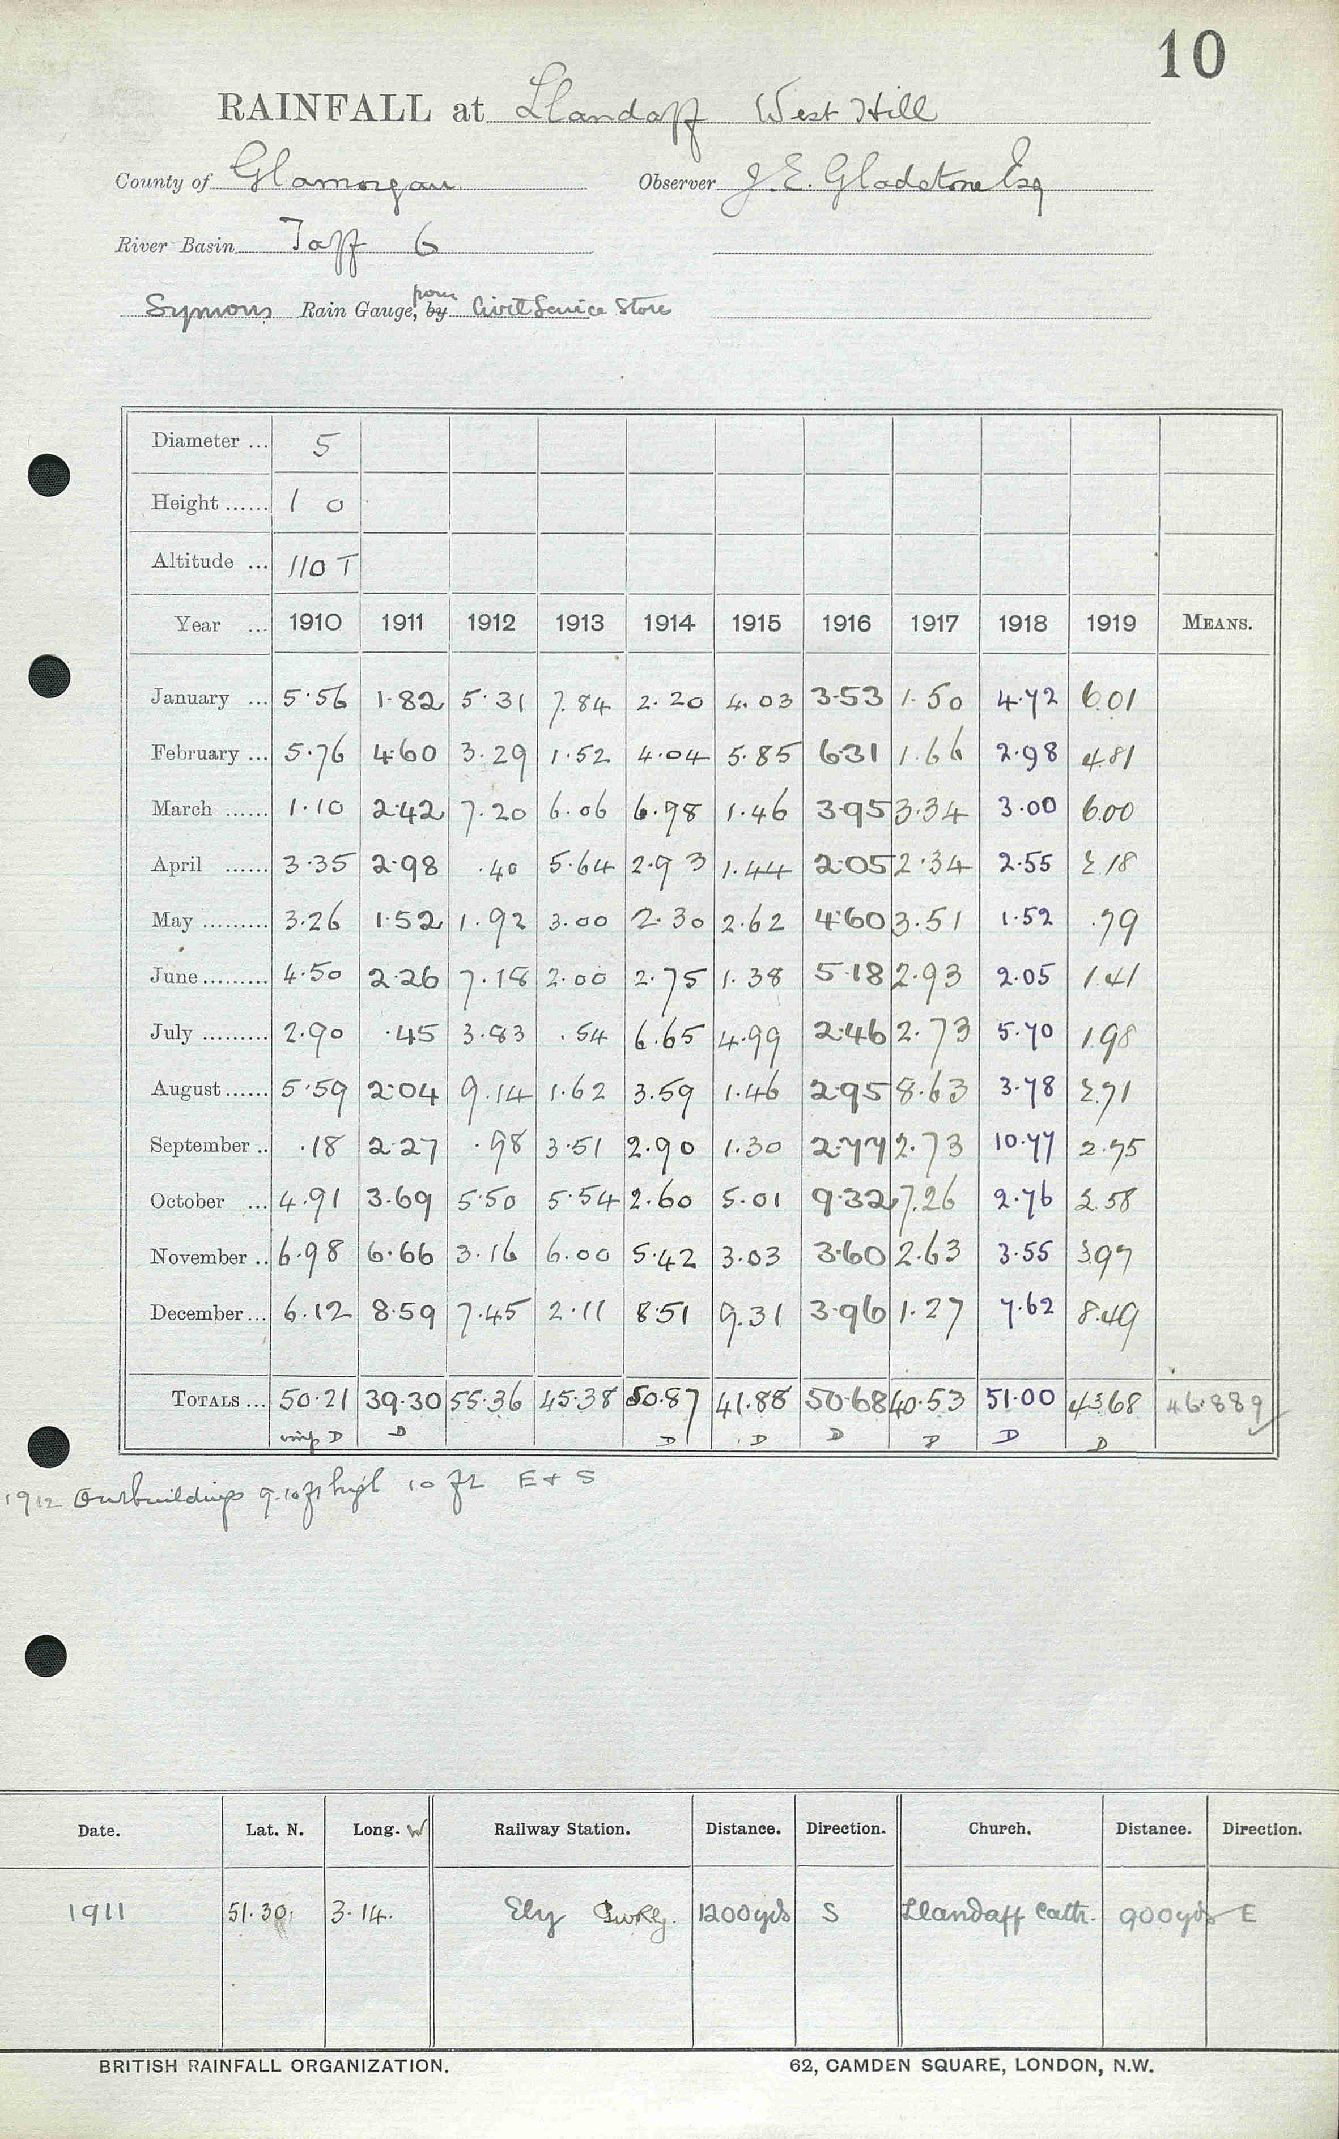 10
RAINFALL at Llandaff West Hill
County of Glamorgan Observer J. E. Gladstone Esq
River Basin Taff 6
Symons Rain Gauge, by from Civil Service Store
Diameter ... 5
Height ...... 1 0
Altitude ... 110 T
Year ... 1910 1911 1912 1913 1914 1915 1916 1917 1918 1919 MEANS.
January ... 5.56 1.82 5.31 7.84 2.20 4.03 3.53 1.50 4.72 6.01
February ... 5.76 4.60 3.29 1.52 4.04 5.85 6.31 1.66 2.98 4.81
March ...... 1.10 2.42 7.20 6.06 6.98 1.46 3.95 3.34 3.00 6.00
April ...... 3.35 2.98 .40 5.64 2.93 1.44 2.05 2.34 2.55 2.18
May ......... 3.26 1.52 1.92 3.00 2.30 2.62 4.60 3.51 1.52 .79
June ......... 4.50 2.26 7.18 2.00 2.75 1.38 5.18 2.93 2.05 1.41
July ......... 2.90 .45 3.83 .54 6.65 4.99 2.46 2.73 5.70 1.98
August ...... 5.59 2.04 9.14 1.62 3.59 1.46 2.95 8.63 3.78 2.71
September .. .18 2.27 .98 3.51 2.90 1.30 2.77 2.73 10.77 2.75
October ... 4.91 3.69 5.50 5.54 2.60 5.01 9.32 7.26 2.76 2.58
November .. 6.98 6.66 3.16 6.00 5.42 3.03 3.60 2.63 3.55 3.97
December ... 6.12 8.59 7.45 2.11 8.51 9.31 3.96 1.27 7.62 8.49
TOTALS ... 50.21 39.30 55.36 45.38 50.87 41.88 50.68 40.53 51.00 43.68 46.889
D D D D D D D D
1912 Outbuildings 9.10 ft high 10 ft E + S
Date. Lat. N. Long. W Railway Station. Distance. Direction. Church. Distance. Direction.
1911 51.30 3.14. Ely 1200 yds S Llandaff Cath. 900 yds E
BRITISH RAINFALL ORGANIZATION. 62, CAMDEN SQUARE, LONDON, N.W.